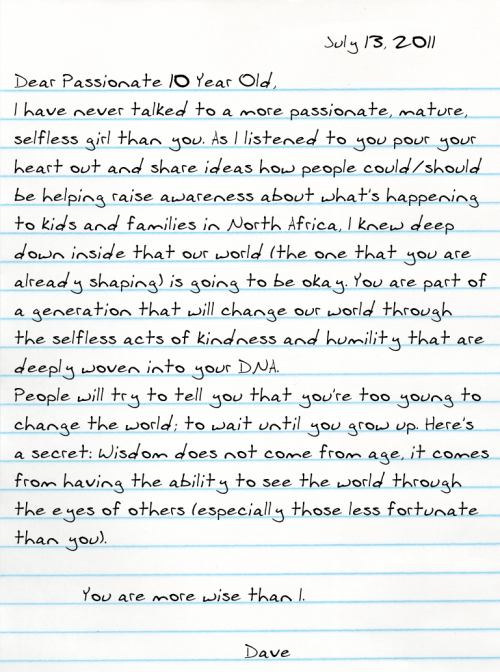 July 13, 2011
Dear Passionate 10 Year Old,
I have never talked to a more passionate, mature,
selfless girl than you. As I listened to you pour your
heart out and share ideas how people could/should
be helping raise awareness about what's happening
to kids and families in North Africa, I knew deep
down inside that our world (the one that you are
already shaping) is going to be okay. You are part of
a generation that will change our world through
the selfless acts of kindness and humility that are
deeply woven into your DNA.
People will try to tell you that you're too young to
change the world; to wait until you grow up. Here's
a secret: Wisdom does not come from age, it comes
from having the ability to see the world through
the eyes of others (especially those less fortunate
than you).
You are more wise than I.
Dave